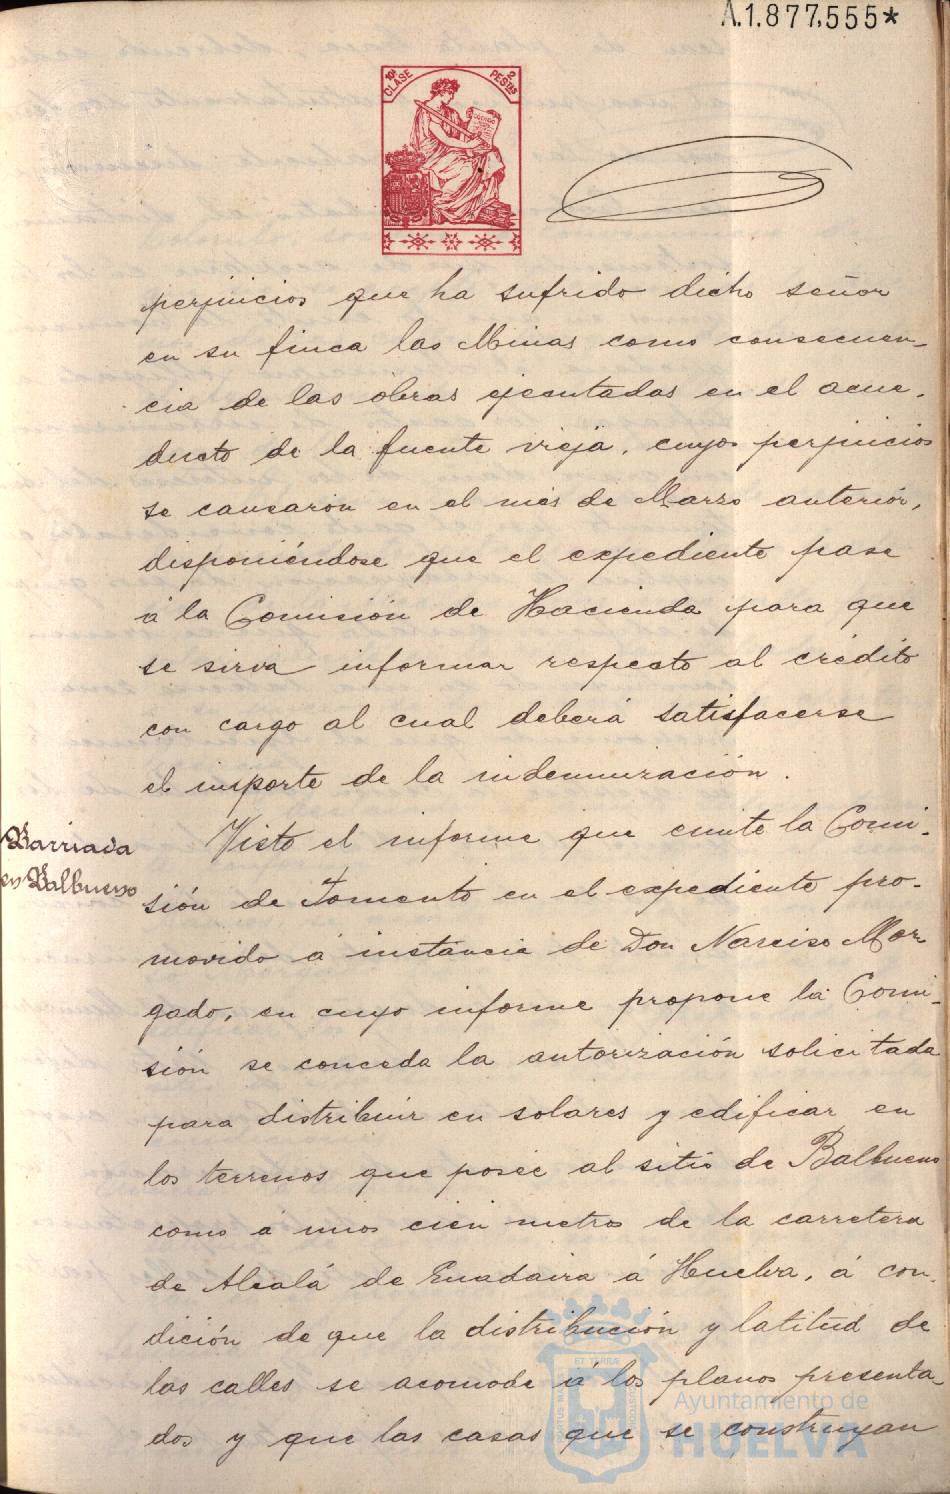 A.1.877.555*
10ª CLASE 2 PESTAS
perjuicios que ha sufrido dicho señor
en su finca las Minas como consecuen-
cia de las obras ejecutadas en el acue-
ducto de la fuente vieja, cuyos perjuicios
se causaron en el mes de Marzo anterior,
disponiéndose que el expediente pase
á la Comisión de Hacienda para que
se sirva informar respecto al crédito
con cargo al cual deberá satisfacerse
el importe de la indemnización.
Barriada
en Balbueno
Visto el informe que emite la Comi-
sión de Fomento en el expediente pro-
movido á instancia de Don Narciso Mor-
gado, en cuyo informe propone la Comi-
sión se conceda la autorización solicitada
para distribuir en solares y edificar en
los terrenos que posee al sitio de Balbueno
como á unos cien metros de la carretera
de Alcalá de Guadaira á Huelva, á con-
dición de que la distribución y latitud de
las calles se acomode á los planos presenta-
dos y que las casas que se construyan
Ayuntamiento de
HUELVA